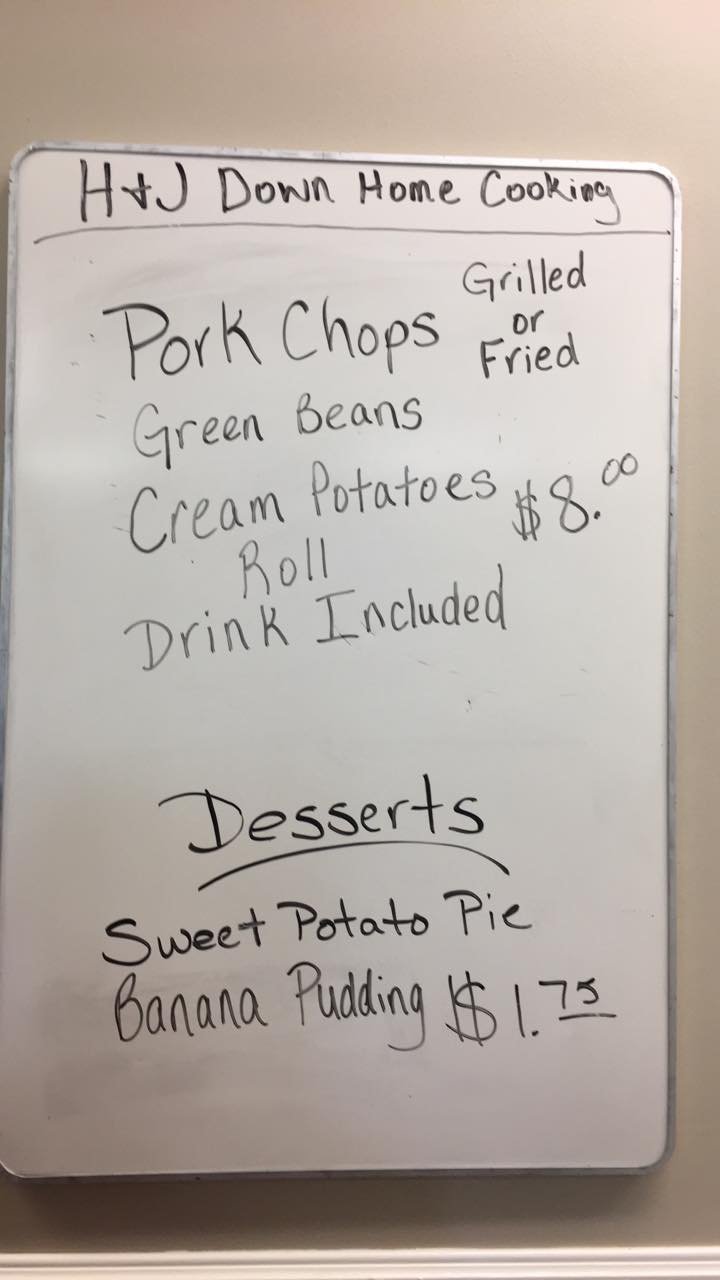 H+J Down Home Cooking
Pork Chops Grilled or Fried
Green Beans
Cream Potatoes $8.00
Roll
Drink Included
Desserts
Sweet Potato Pie
Banana Pudding $1.75